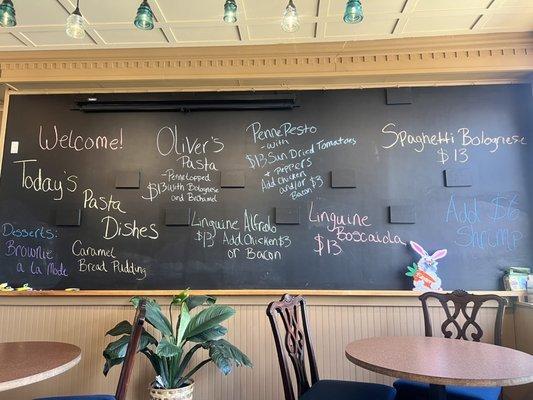 Welcome!
Today's
Pasta
Dishes
Desserts:
Brownie
a la Mode
Caramel
Bread Pudding
Oliver's
Pasta
-Penne topped
$13 with Bolognese
and Bechamel
Penne Pesto
-with
$13 Sun Dried Tomatoes
+ Peppers
Add Chicken $3
and/or
Bacon
Linguine Alfredo
$13 Add Chicken $3
or Bacon
Linguine
$13 Boscaiola
Spaghetti Bolognese
$13
Add $6
Shrimp